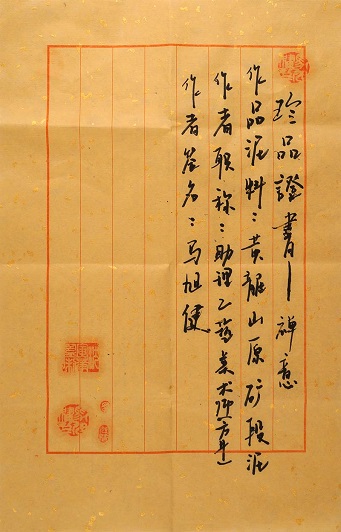 珍品證書——禅意
作品泥料：黄龍山原矿段泥
作者职称：助理工艺美术师(方井)
作者签名：马旭健